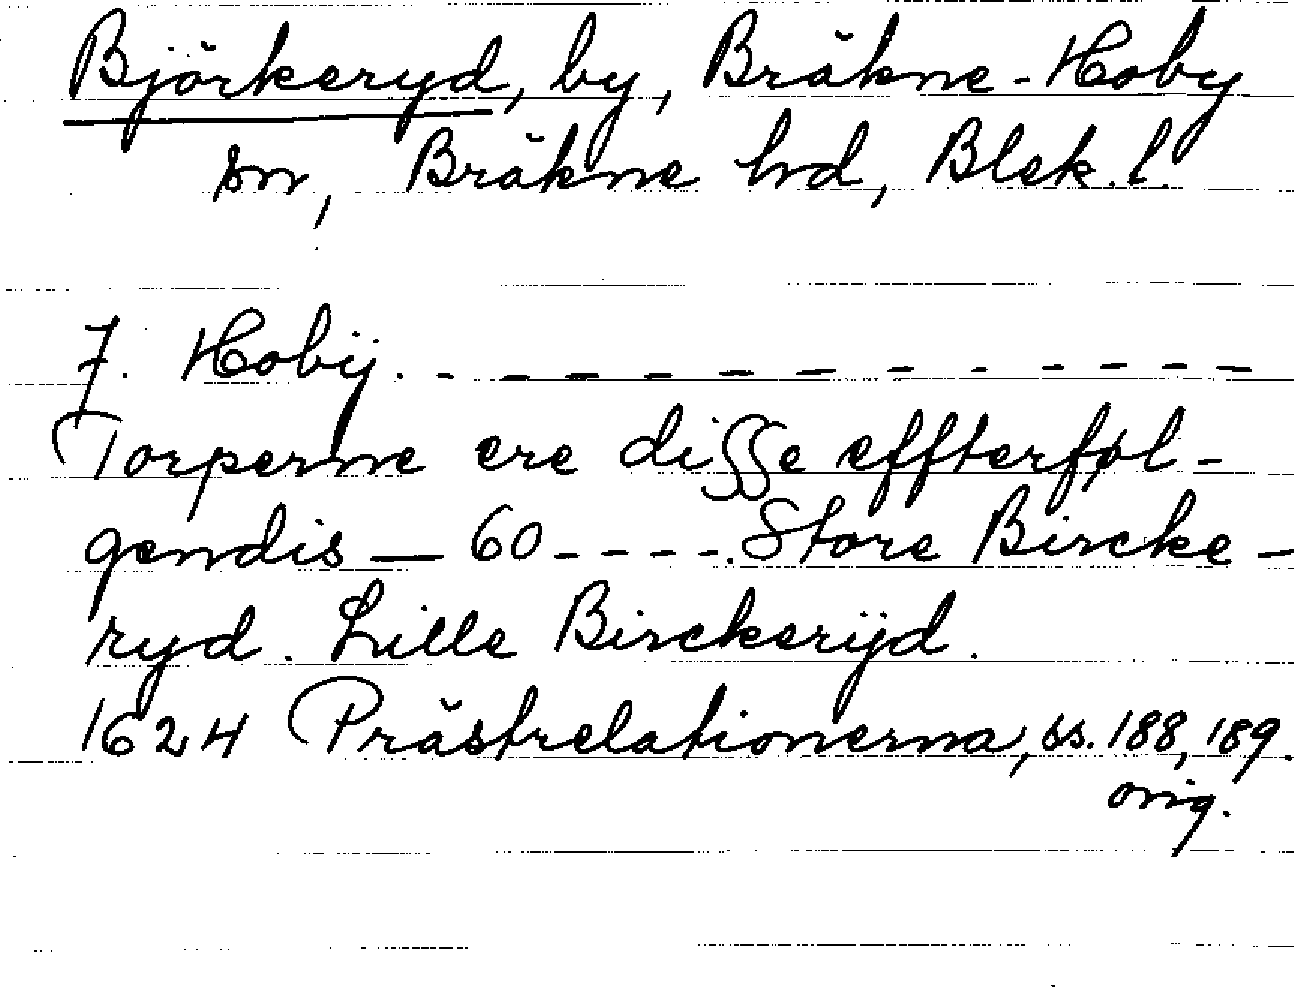 Björkeryd, by, Bräkne-Hoby
sn, Bräkne hd, Blek. l.
J. Hobÿ. - - - - - - - - - - - -
Torperne ere disse effterføl-
gendis — 60 - - - -. Store Bircke-
ryd. Lille Birckerÿd.
1624 Prästrelationerna, ss. 188, 189.
orig.